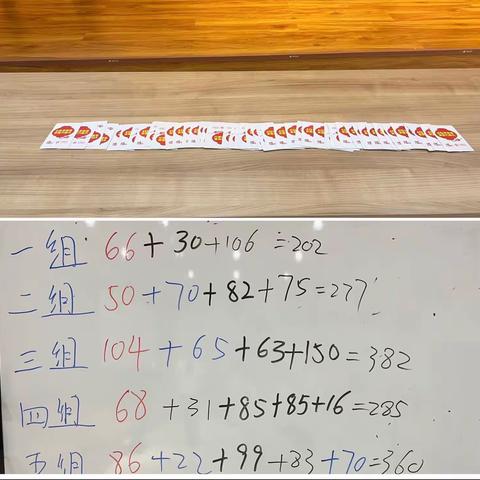 一组 66+30+106=202
二组 50+70+82+75=277
三组 104+65+63+150=382
四组 68+31+85+85+16=285
五组 86+22+99+83+70=360